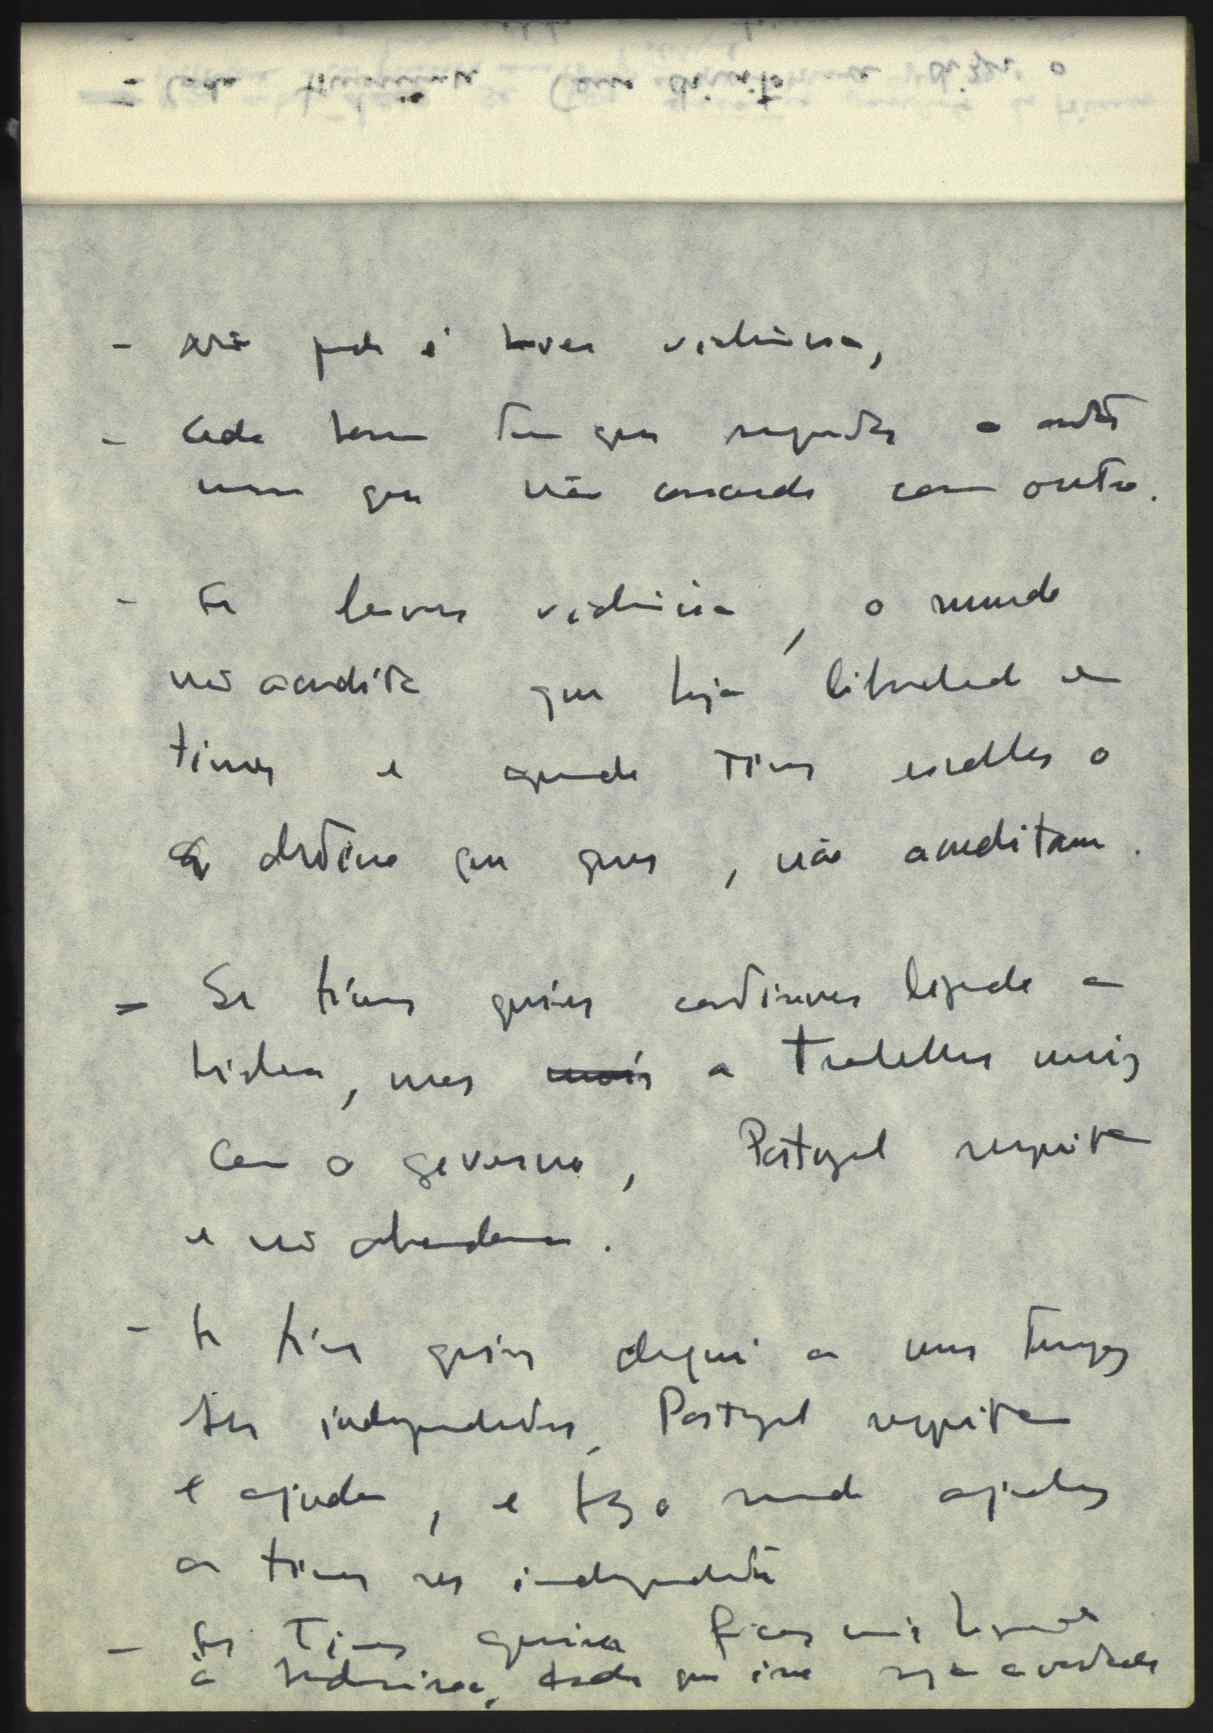 - não pode é haver violência,
- cada homem tem que respeitar o outro
mesmo que não concorde com outro.
- Se houver violência, o mundo
não acredita que haja liberdade em
timor e quando Timor escolher o
destino que quer, não acreditam.
- Se timor quiser continuar ligado a
Lisboa, mas a trabalhar mais
com o governo, Portugal respeita
e não abandona.
- Se timor quiser daqui a uns tempos
ser independente, Portugal respeita
e ajuda, e faz o mundo ajudar
a timor ser independente
- Se Timor quiser ficar mais ligado
à Indonésia, desde que isso seja a verdade